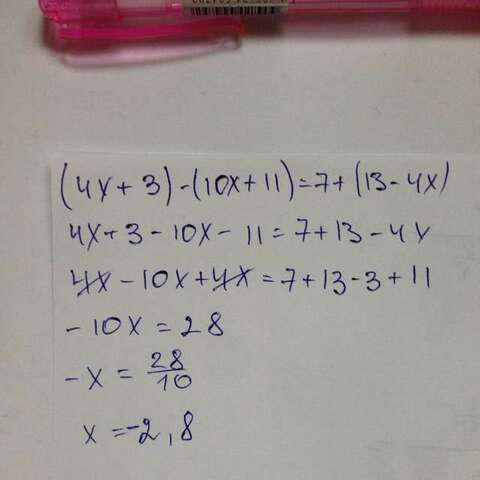 (4x+3)-(10x+11)=7+(13-4x)
4x+3-10x-11=7+13-4x
4x-10x+4x=7+13-3+11
-10x=28
-x=28/10
x=-2,8